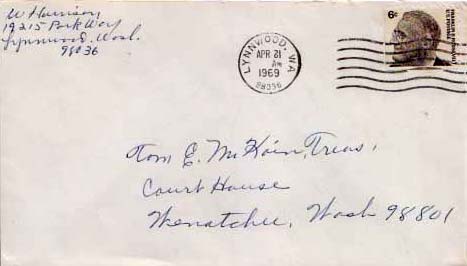 W Harrison
19215 Park Way
Lynnwood. Wash.
98036
LYNNWOOD, WA
APR 21
AM
1969
98036
6¢
FRANKLIN D. ROOSEVELT
U.S. POSTAGE
Tom E. McKoin, Treas.
Court House
Wenatchee, Wash 98801